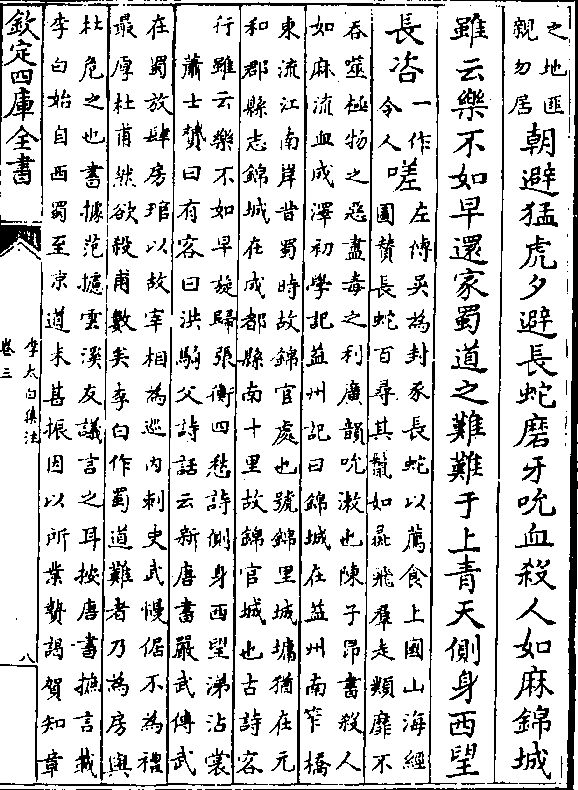 之地匪
親勿居
朝避猛虎夕避長蛇磨牙吮血殺人如麻錦城
雖云樂不如早還家蜀道之難難于上青天側身西望
長咨
一作
令人
嗟
左傳吳為封豕長蛇以薦食上國山海經
圖贊長蛇百尋其鬣如彘飛羣走類靡不
吞噬極物之惡盡毒之利廣韻吮漱也陳子昂書殺人
如麻流血成澤初學記益州記曰錦城在益州南笮橋
東流江南岸昔蜀時故錦官處也號錦里城墉猶在元
和郡縣志錦城在成都縣南十里故錦官城也古詩客
行雖云樂不如早旋歸張衡四愁詩側身西望涕沾裳
蕭士贇曰有客曰洪駒父詩話云新唐書嚴武傳武
在蜀放肆房琯以故宰相為巡內刺史武慢倨不為禮
最厚杜甫然欲殺甫數矣李白作蜀道難者乃為房與
杜危之也書據范攄雲溪友議言之耳按唐書摭言載
李白始自西蜀至京道未甚振因以所業贄謁賀知章
欽定四庫全書
李太白集注
卷三
八